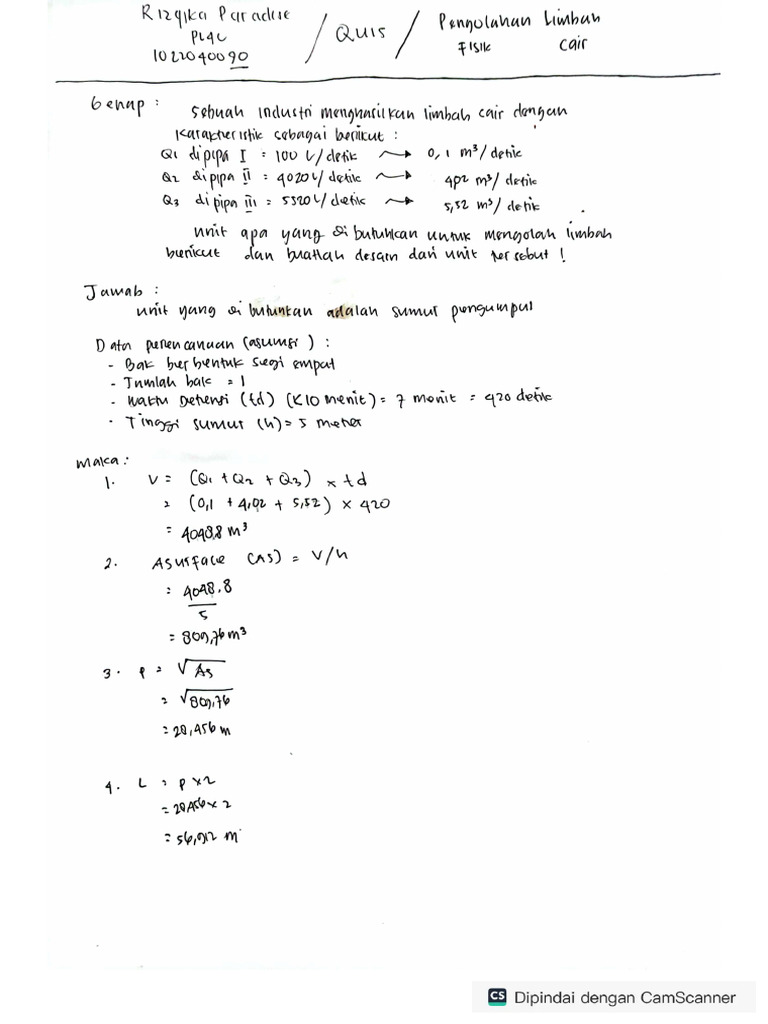 Rizqika Paradise / QUIS / Pengolahan Limbah
PL4C Fisik Cair
1022040090
Genap : Sebuah industri menghasilkan limbah cair dengan
Karakteristik sebagai berikut :
Q1 di pipa I = 100 L/detik → 0,1 m³/detik
Q2 di pipa II = 4020 L/detik → 4,02 m³/detik
Q3 di pipa III = 5520 L/detik → 5,52 m³/detik
unit apa yang dibutuhkan untuk mengolah limbah
berikut dan buatlah desain dari unit tersebut !
Jawab :
unit yang dibutuhkan adalah sumur pengumpul
Data perencanaan (asumsi) :
- Bak berbentuk segi empat
- Jumlah bak = 1
- Waktu Detensi (td) (<10 menit) = 7 menit = 420 detik
- Tinggi sumur (h) = 5 meter
Maka :
1. V = (Q1 + Q2 + Q3) x td
= (0,1 + 4,02 + 5,52) x 420
= 4048,8 m³
2. A surface (As) = V/h
= 4048,8
5
= 809,76 m³
3. P = √As
= √809,76
= 28,456 m
4. L = P x 2
= 28,456 x 2
= 56,912 m
CS Dipindai dengan CamScanner